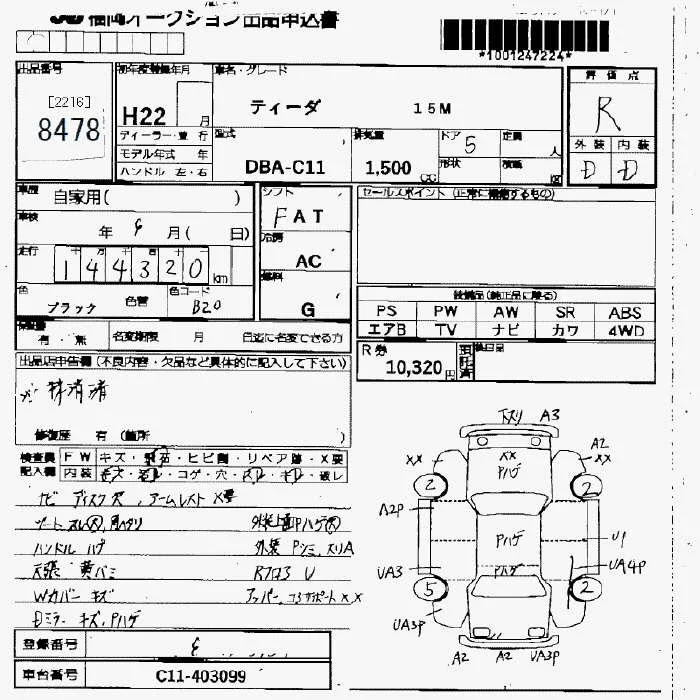 JU 福岡オークション出品申込書
*1001247224*
出品番号 初年度登録年月 車名・グレード 評価点
[2216]
8478
H22 月 ティーダ 15M R
ディーラー・並行 型式 排気量 ドア 5 定員 人 外装 内装
モデル年式 年 DBA-C11 1,500 CC 形状 積載 D D
ハンドル 左・右
車歴 自家用( ) シフト FAT セールスポイント
車検 年 月( 日) 冷房 AC
走行 144320 km
燃料 G
色 ブラック 色替 色コード B20
装備品(純正品に限る)
PS PW AW SR ABS
エアB TV ナビ カワ 4WD
有・無 名変期限 月
R券 10,320 円 預託済
出品店申告欄(不良内容・欠品など具体的に記入して下さい)
抹消済
修復歴 有(箇所 )
検査員 FW キズ・ ・ヒビ割・リペア跡・X要
記入欄 内装 キズ・ ・コゲ・穴・スレ・ ・破レ
ナビ ディスク欠, アームレスト X要
ハンドル ハゲ 外装 Pシミ, スリA
Wカバー キズ
ミラー キズ, Pハゲ
下スリ A3
XX XX Pハゲ A2 XX
2 2
A2P Pハゲ U1
UA3 Pハゲ UA4P
5 2
UA3P
A2 A2 UA3P
登録番号
車台番号 C11-403099